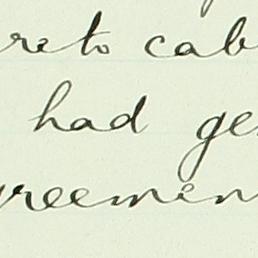 reto cab
had ge
greemen